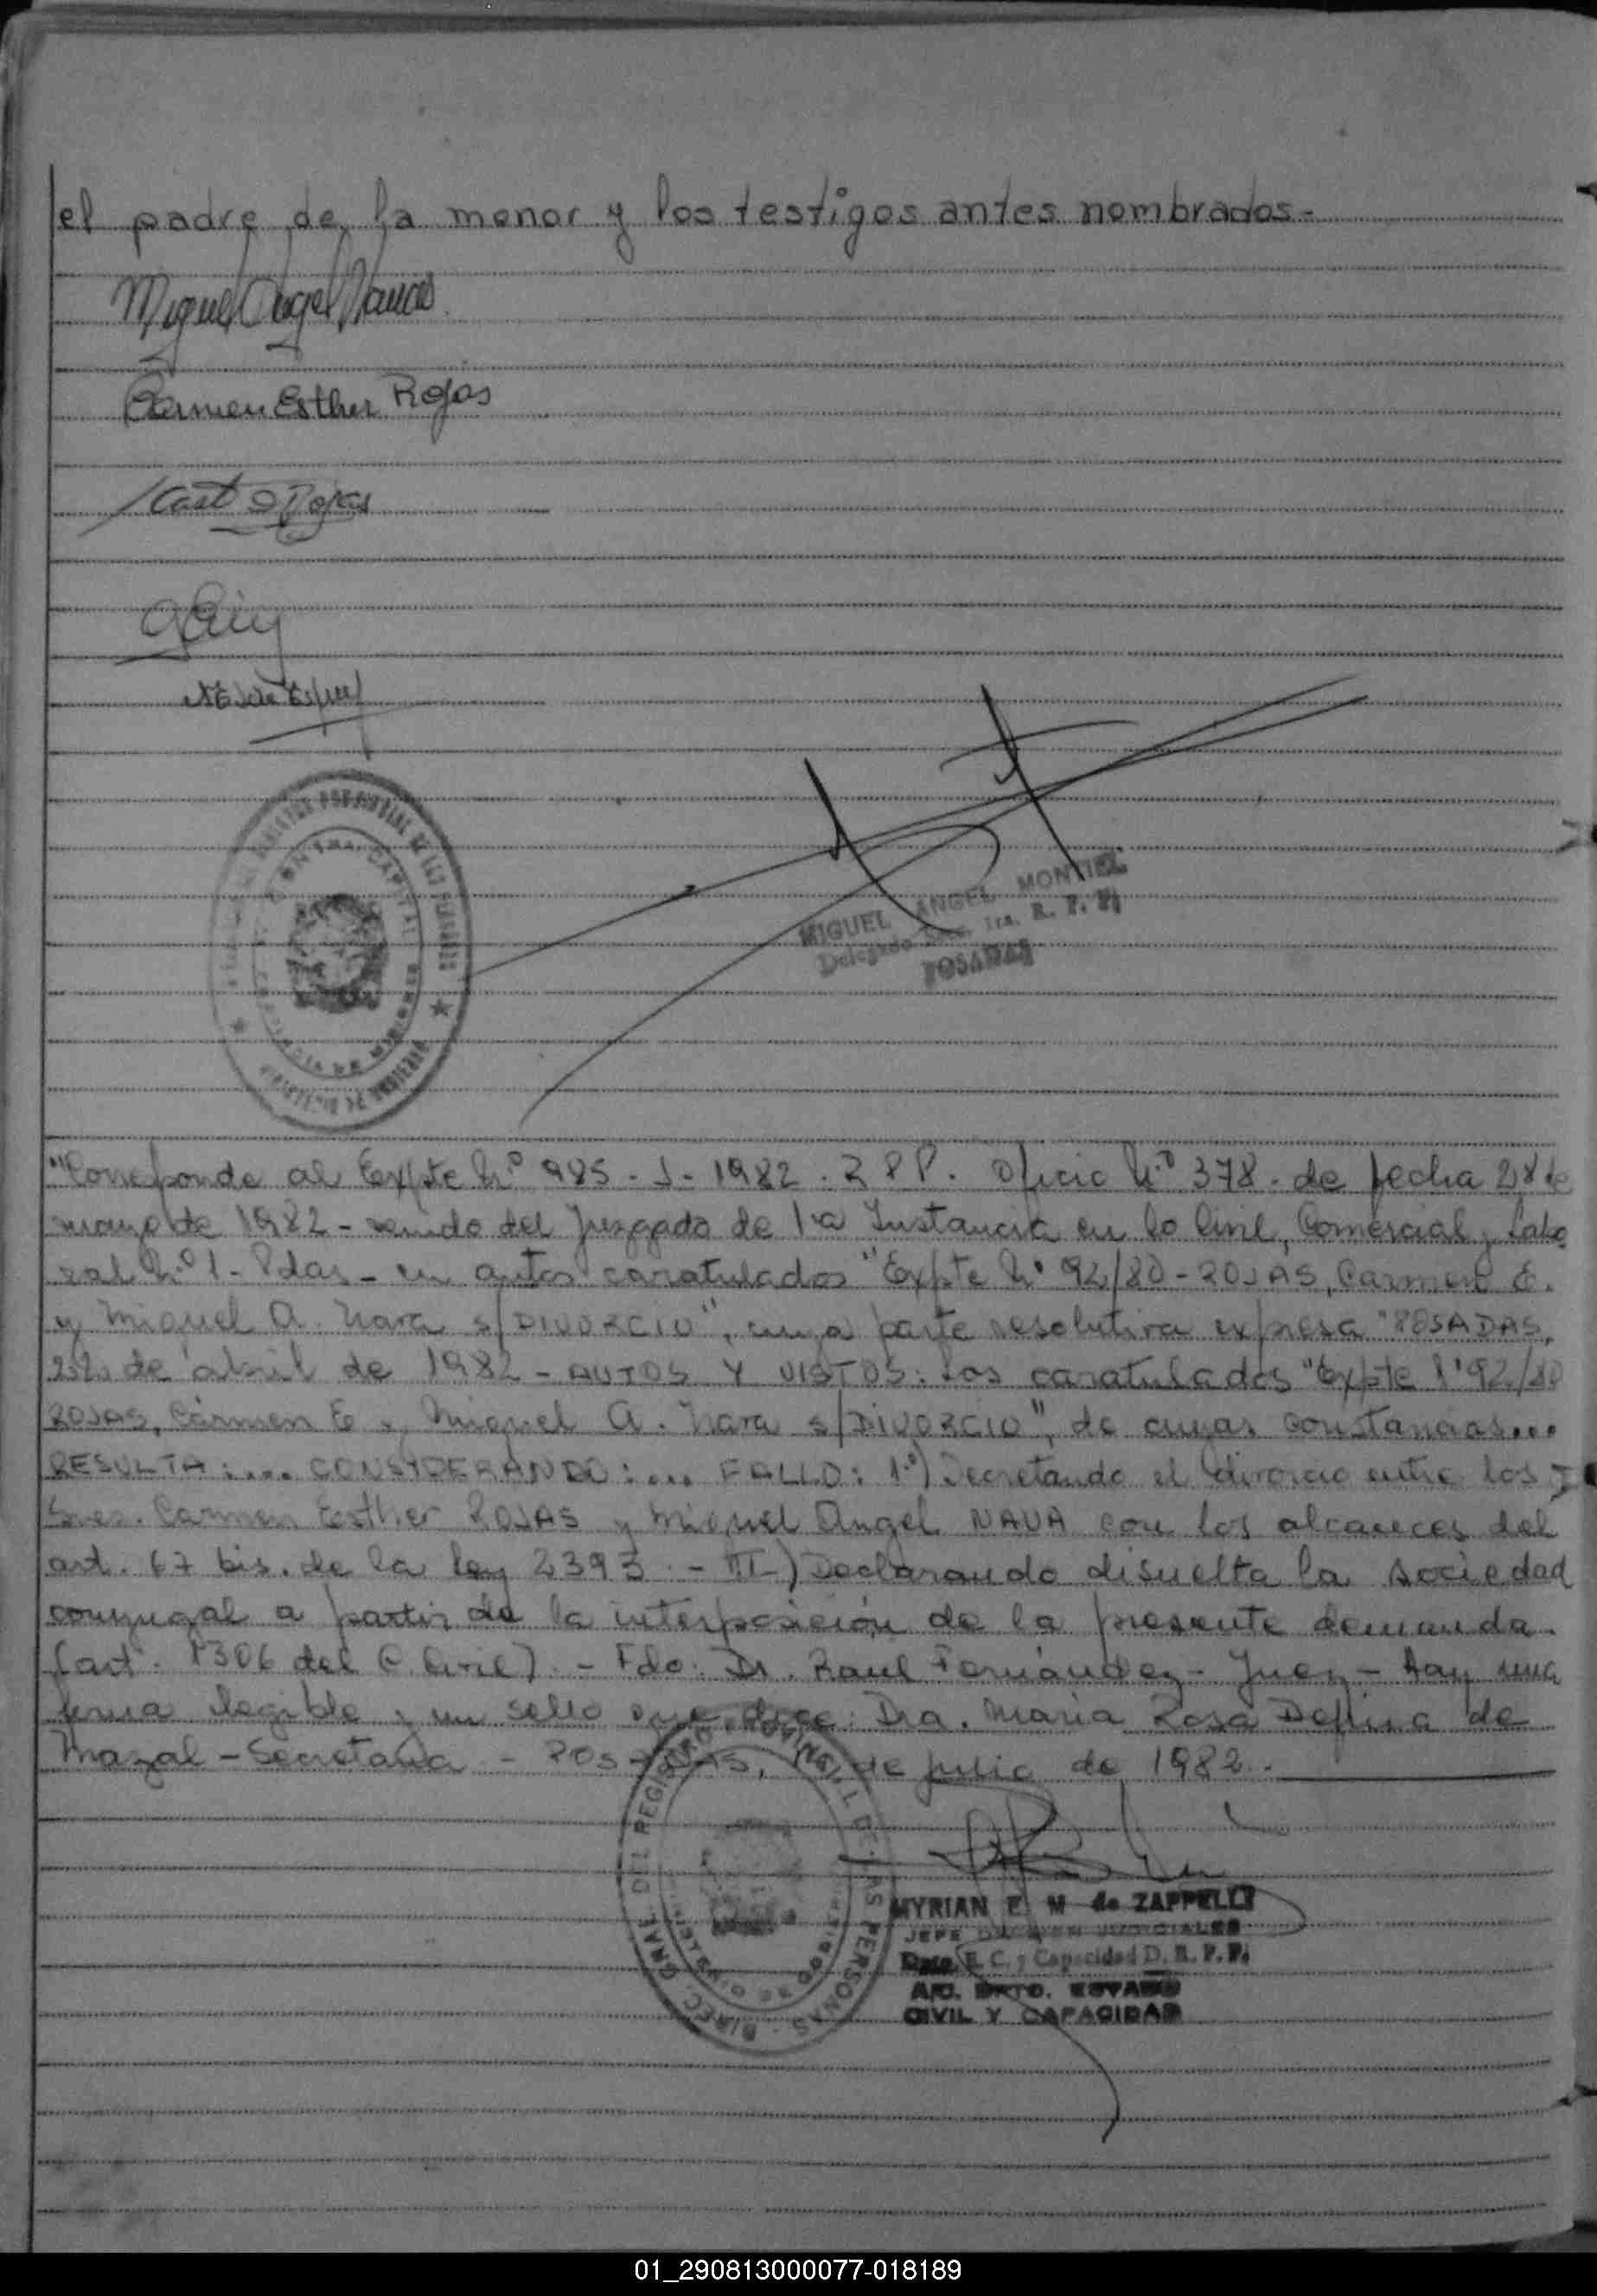 el padre de la menor y los testigos antes nombrados.-
Miguel Angel
Carmen Esther Rojas
Rojas
MIGUEL ANGEL MONTIEL
Delegado Secc. 1ra. R. P. P.
POSADAS
"Corresponde al Expte N.º 985-J-1982. R P P. Oficio N.º 378. de fecha 28 de
mayo de 1982 - venido del Juzgado de 1ra Instancia en lo Civil, Comercial y Labo
ral N.º 1 - Pdas - en autos caratulados "Expte N.º 92/80 - ROJAS, Carmen E.
y Miguel A. Nava s/DIVORCIO", cuya parte resolutiva expresa "POSADAS,
de abril de 1982 - AUTOS Y VISTOS: Los caratulados "Expte Nº 92/80
ROJAS, Carmen E y Miguel A. Nava s/DIVORCIO", de cuyas constancias...
RESULTA:... CONSIDERANDO:... FALLO: 1º) Decretando el divorcio entre los
Sres. Carmen Esther ROJAS y Miguel Angel NAVA con los alcances del
art. 67 bis. de la ley 2393. - III-) Declarando disuelta la sociedad
conyugal a partir de la interposición de la presente demanda.
(art. 1306 del C. Civil). - Fdo: Dr. Raul Fernández - Juez - Hay una
firma ilegible y un sello que dice: Dra. Maria Rosa de
Mazal - Secretaria - POSADAS, de julio de 1982.
DIREC. GRAL. DEL REGISTRO PROVINCIAL DE LAS PERSONAS
MYRIAN E. M. de ZAPPELLI
JEFE JUDICIALES
Dpto. E. C. y Capacidad D. R. P. P.
A/C. DPTO. ESTADO
CIVIL Y CAPACIDAD
01_290813000077-018189